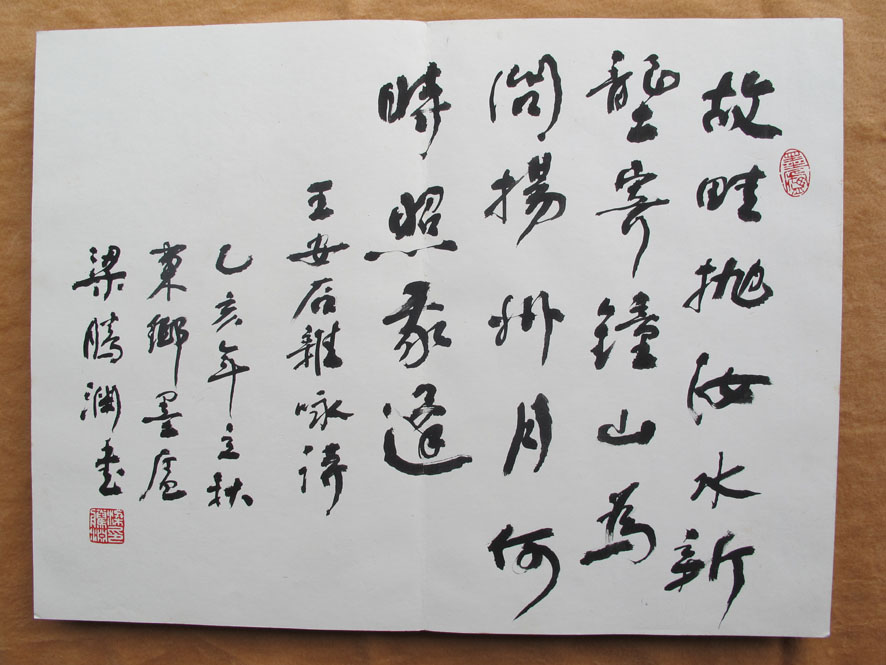 墨海
故畦拋汝水新
壟寄鐘山為
問揚州月何
時照我還
王安石雜咏詩
乙亥年立秋
東鄉墨廬
梁騰瀾書